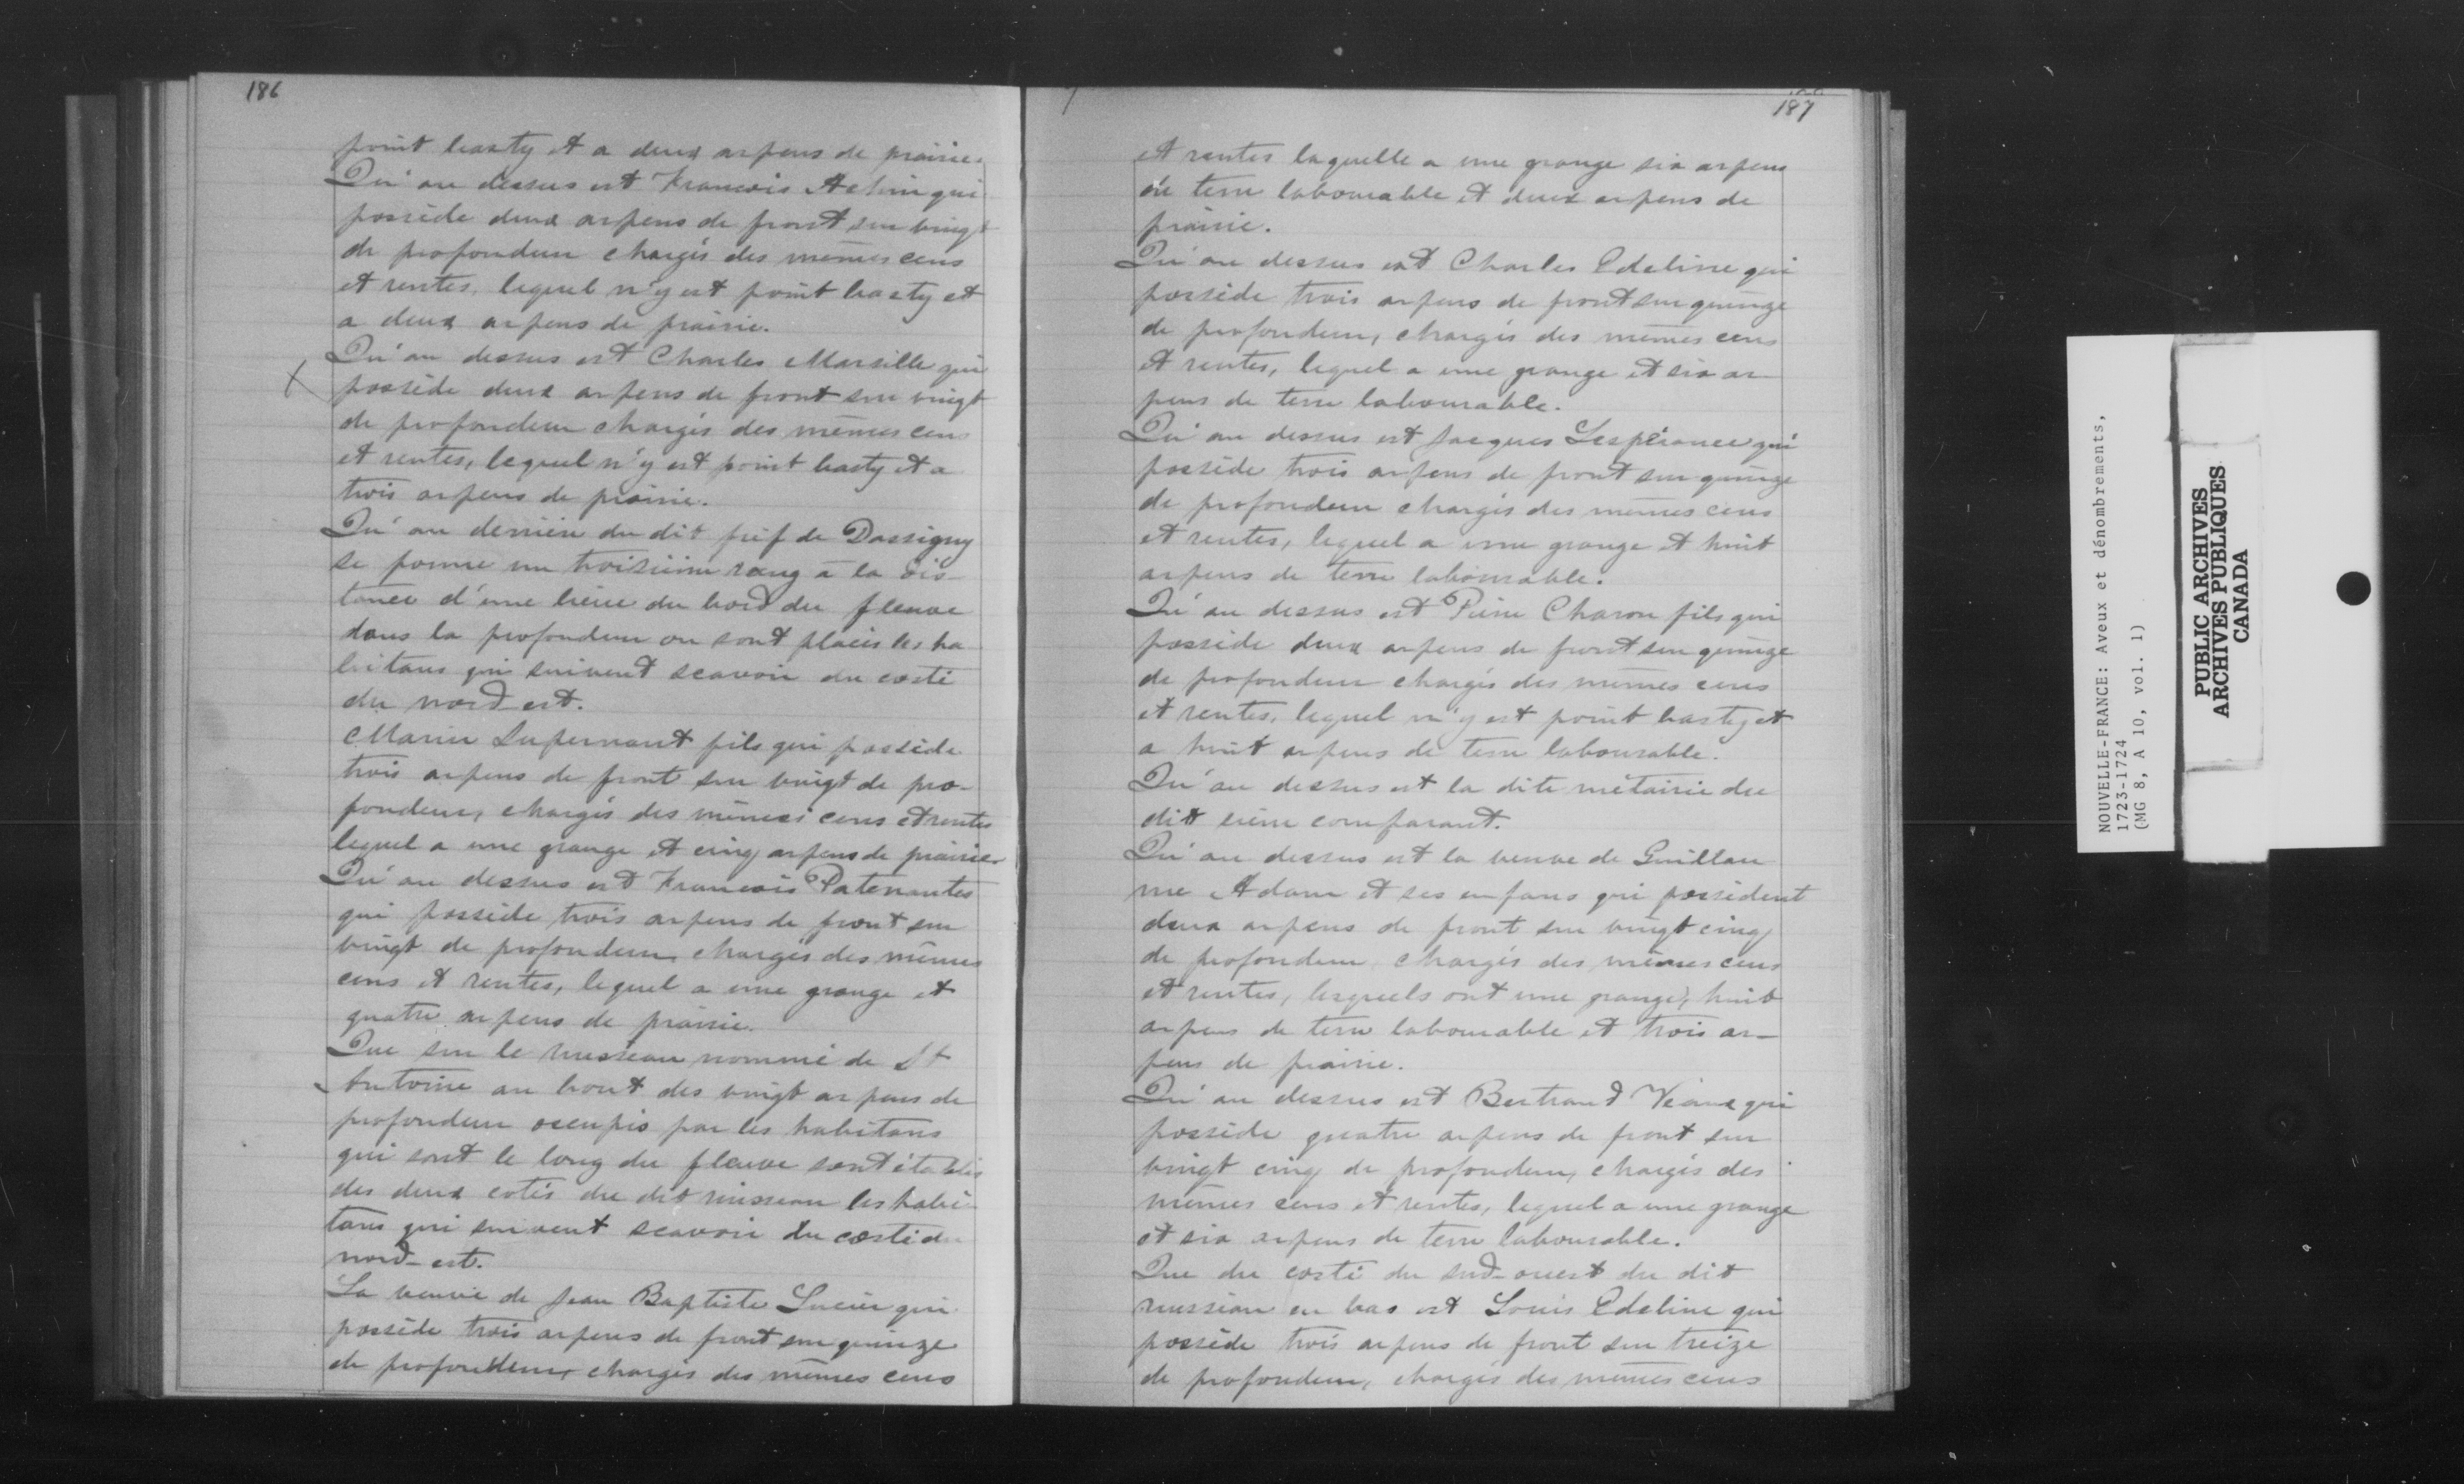 186
point basty et a deux arpens de prairie.
Qu'au dessus est Francois Achin qui
possède deux arpens de front sur vingt
de profondeur chargés des mêmes cens
et rentes, lequel n'y est point basty et
a deux arpens de prairie.
Qu'au dessus est Charles Marsille qui
possède deux arpens de front sur vingt
de profondeur chargés des mêmes cens
et rentes, lequel n'y est point basty et a
trois arpens de prairie.
Qu'au derrière du dit fief de Dassigny
se forme un troisième rang à la dis-
tance d'une lieue du bord du fleuve
dans la profondeur ou sont placés les ha
bitans qui suivent scavoir du costé
du nord-est.
Marin Supernant fils qui possède
trois arpens de front sur vingt de pro-
fondeur, chargés des mêmes cens et rentes
lequel a une grange et cinq arpens de prairie
Qu'au dessus est Francois Patenautes
qui possède trois arpens de front sur
vingt de profondeur chargés des mêmes
cens et rentes, lequel a une grange et
quatre arpens de prairie.
Que sur le ruisseau nommé de St
Antoine au bout des vingt arpens de
profondeur occupés par les habitans
qui sont le long du fleuve sont établis
des deux cotés du dit ruisseau les habi-
tans qui suivent scavoir du costé du
nord-est.
La veuve de Jean Baptiste Lucier qui
possède trois arpens de front sur quinze
de profondeur, chargés des mêmes cens
187
et rentes laquelle a une grange six arpens
de terre labourable et deux arpens de
prairie.
Qu'au dessus est Charles Edeline qui
possède trois arpens de front sur quinze
de profondeur, chargés des mêmes cens
et rentes, lequel a une grange et six ar-
pens de terre labourable.
Qu'au dessus est Jacques Lespérance qui
possède trois arpens de front sur quinze
de profondeur chargés des mêmes cens
et rentes, lequel a une grange et huit
arpens de terre labourable.
Qu'au dessus est Pierre Charon fils qui
possède deux arpens de front sur quinze
de profondeur chargés des mêmes cens
et rentes, lequel n'y est point basty et
a huit arpens de terre labourable.
Qu'au dessus est la dite métairie du
dit sieur comparant.
Qu'au dessus est la veuve de Guillau
me Adam et ses enfans qui possèdent
deux arpens de front sur vingt cinq
de profondeur chargés des mêmes cens
et rentes, lesquels ont une grange, huit
arpens de terre labourable et trois ar-
pens de prairie.
Qu'au dessus est Bertrand Véaux qui
possède quatre arpens de front sur
vingt cinq de profondeur, chargés des
mêmes cens et rentes, lequel a une grange
et six arpens de terre labourable.
Que du costé du sud-ouest du dit
ruisseau en bas est Louis Edeline qui
possède trois arpens de front sur treize
de profondeur, chargés des mêmes cens
NOUVELLE-FRANCE: Aveux et dénombrements,
1723-1724
(MG 8, A 10, vol. 1)
PUBLIC ARCHIVES
ARCHIVES PUBLIQUES
CANADA